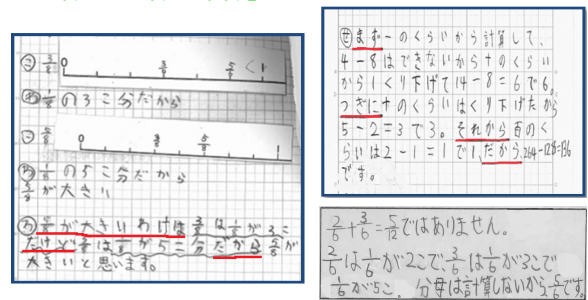 ㋙ 3/8
0 3/8 5/8 < 1
㋻ 1/8の3こ分だから
㋙ 5/8
0 3/8 5/8 1
㋻ 1/8の5こ分だから
5/8が大きい
㋻ 5/8が大きいわけは3/8は1/8が3こ
だけど5/8は1/8が5こ分だから5/8が
大きいと思います。
㋝ まず一のくらいから計算して、
4-8はできないから十のくらい
から1くり下げて14-8=6で6。
つぎに十のくらいはくり下げたから
5-2=3で3。それから百のく
らいは2-1=1で1、だから、264-128=136
です。
2/6+3/6=5/12ではありません。
2/6は1/6が2こで、3/6は1/6が3こで
1/6が5こ。分母は計算しないから5/6です。